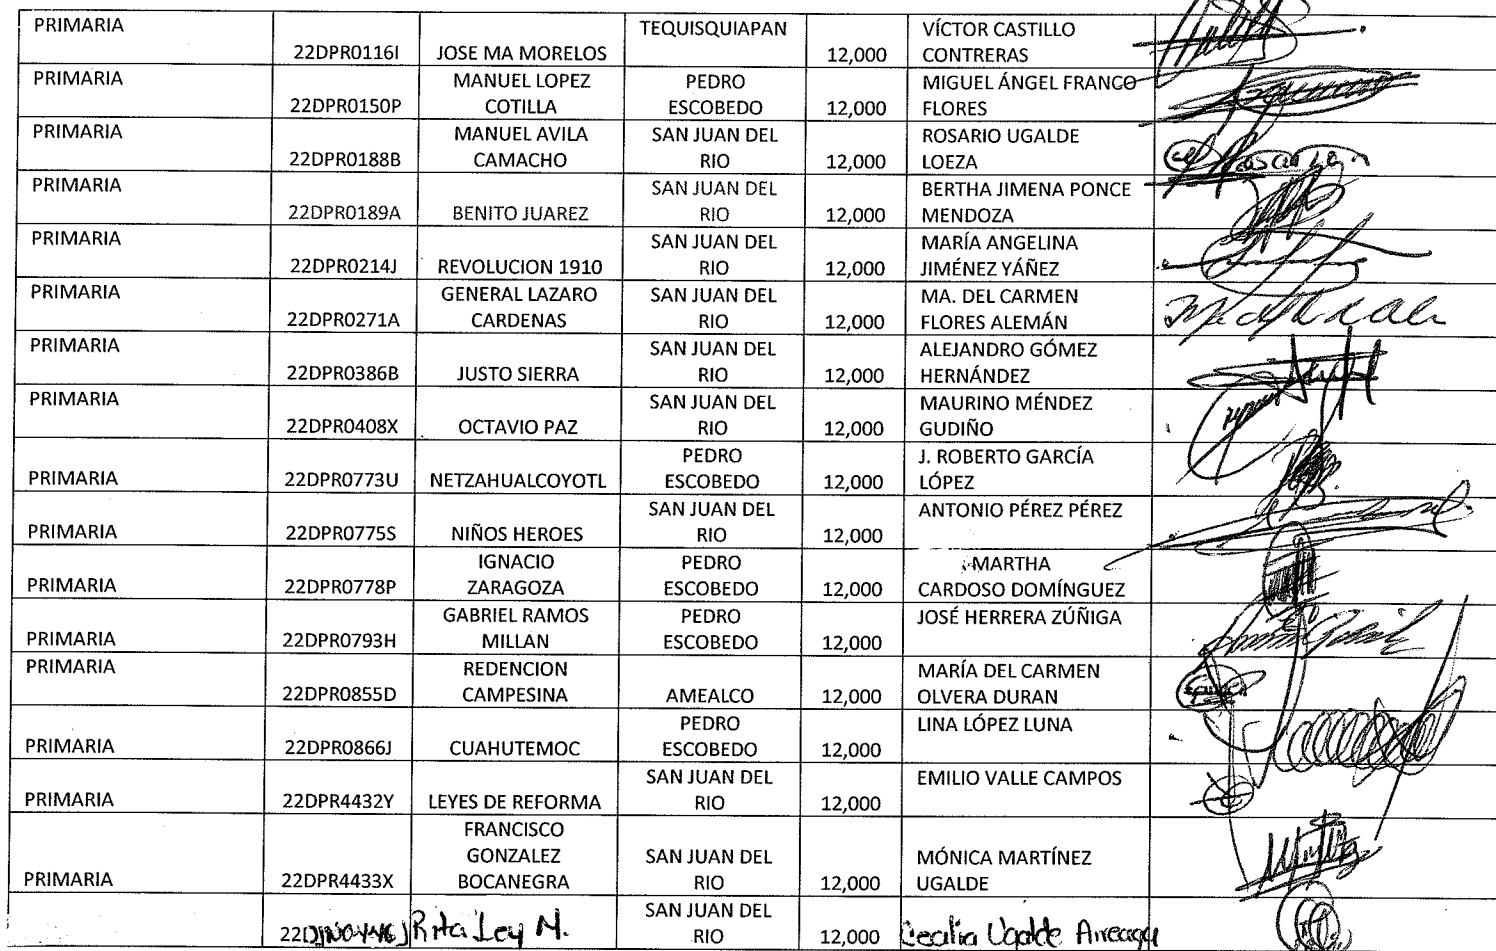 PRIMARIA 22DPR0116I JOSE MA MORELOS TEQUISQUIAPAN 12,000 VÍCTOR CASTILLO CONTRERAS
PRIMARIA 22DPR0150P MANUEL LOPEZ COTILLA PEDRO ESCOBEDO 12,000 MIGUEL ÁNGEL FRANCO FLORES
PRIMARIA 22DPR0188B MANUEL AVILA CAMACHO SAN JUAN DEL RIO 12,000 ROSARIO UGALDE LOEZA
PRIMARIA 22DPR0189A BENITO JUAREZ SAN JUAN DEL RIO 12,000 BERTHA JIMENA PONCE MENDOZA
PRIMARIA 22DPR0214J REVOLUCION 1910 SAN JUAN DEL RIO 12,000 MARÍA ANGELINA JIMÉNEZ YÁÑEZ
PRIMARIA 22DPR0271A GENERAL LAZARO CARDENAS SAN JUAN DEL RIO 12,000 MA. DEL CARMEN FLORES ALEMÁN
PRIMARIA 22DPR0386B JUSTO SIERRA SAN JUAN DEL RIO 12,000 ALEJANDRO GÓMEZ HERNÁNDEZ
PRIMARIA 22DPR0408X OCTAVIO PAZ SAN JUAN DEL RIO 12,000 MAURINO MÉNDEZ GUDIÑO
PRIMARIA 22DPR0773U NETZAHUALCOYOTL PEDRO ESCOBEDO 12,000 J. ROBERTO GARCÍA LÓPEZ
PRIMARIA 22DPR0775S NIÑOS HEROES SAN JUAN DEL RIO 12,000 ANTONIO PÉREZ PÉREZ
PRIMARIA 22DPR0778P IGNACIO ZARAGOZA PEDRO ESCOBEDO 12,000 MARTHA CARDOSO DOMÍNGUEZ
PRIMARIA 22DPR0793H GABRIEL RAMOS MILLAN PEDRO ESCOBEDO 12,000 JOSÉ HERRERA ZÚÑIGA
PRIMARIA 22DPR0855D REDENCION CAMPESINA AMEALCO 12,000 MARÍA DEL CARMEN OLVERA DURAN
PRIMARIA 22DPR0866J CUAHUTEMOC PEDRO ESCOBEDO 12,000 LINA LÓPEZ LUNA
PRIMARIA 22DPR4432Y LEYES DE REFORMA SAN JUAN DEL RIO 12,000 EMILIO VALLE CAMPOS
PRIMARIA 22DPR4433X FRANCISCO GONZALEZ BOCANEGRA SAN JUAN DEL RIO 12,000 MÓNICA MARTÍNEZ UGALDE
Rita Ley M. SAN JUAN DEL RIO 12,000 Cecilia Ugalde Arreaga